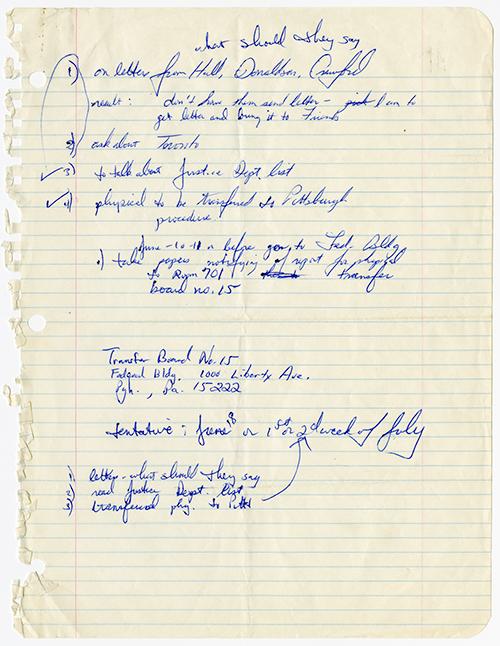 what should they say
1) on letter from Hull, Donaldson, Crawford
result: don't have them send letter - I am to
get letter and bring it to Friends
2) ask about Toronto
✓ 3) to talk about Justice Dept. list
✓ 4) physical to be transferred to Pittsburgh
procedure
June - 10-11 or before go to Fed. Bldg
1) take papers notifying of report for physical
to Room 701 transfer
board no. 15
Transfer Board No. 15
Federal Bldg. 1000 Liberty Ave.
Pgh., Pa. 15222
tentative: June 18 or 1st or 2d week of July
1) letter - what should they say
2) read Justice Dept. list
3) transferred phy. to Pitts